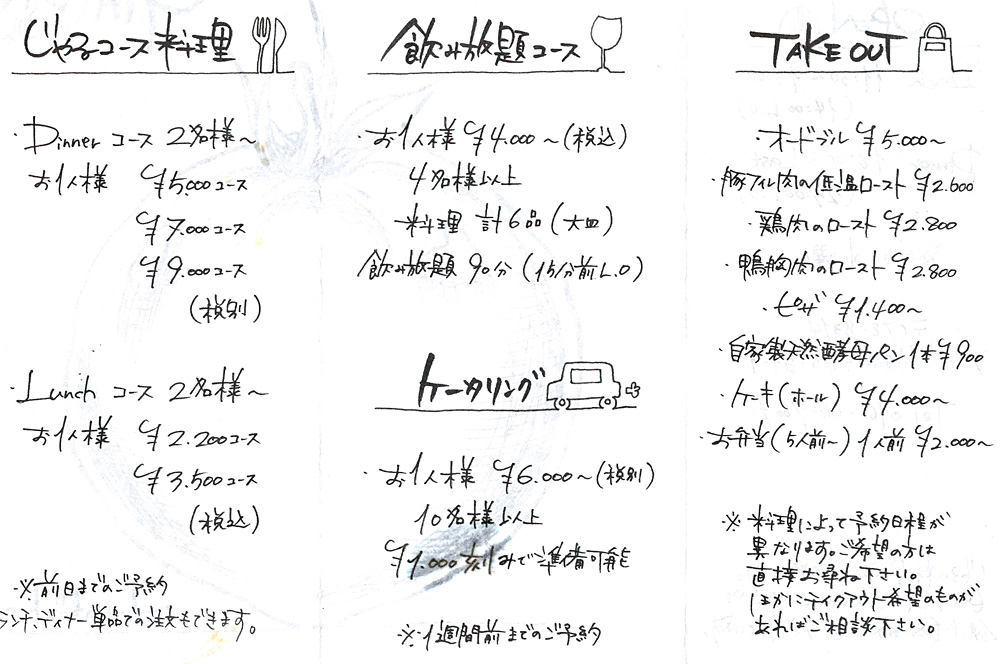 じゃるコース料理
・Dinner コース 2名様〜
お1人様 ¥5.000コース
¥7.000コース
¥9.000コース
(税別)
・Lunch コース 2名様〜
お1人様 ¥2.200コース
¥3.500コース
(税込)
※前日までのご予約
ランチ、ディナー単品での注文もできます。
飲み放題コース
・お1人様 ¥4.000〜(税込)
4名様以上
料理 計6品(大皿)
飲み放題 90分(15分前L.O)
ケータリング
・お1人様 ¥6.000〜(税別)
10名様以上
¥1.000刻みで準備可能
※1週間前までのご予約
TAKE OUT
・オードブル ¥5.000〜
・豚フィレ肉の低温ロースト ¥2.600
・鶏肉のロースト ¥2.800
・鴨胸肉のロースト ¥2.800
・ピザ ¥1.400〜
・自家製天然酵母パン 1本¥900
・ケーキ(ホール) ¥4.000〜
・お弁当(5人前〜) 1人前 ¥2.000〜
※料理によって予約日程が
異なります。ご希望の方は
直接お尋ね下さい。
ほかにテイクアウト希望のものが
あればご相談下さい。